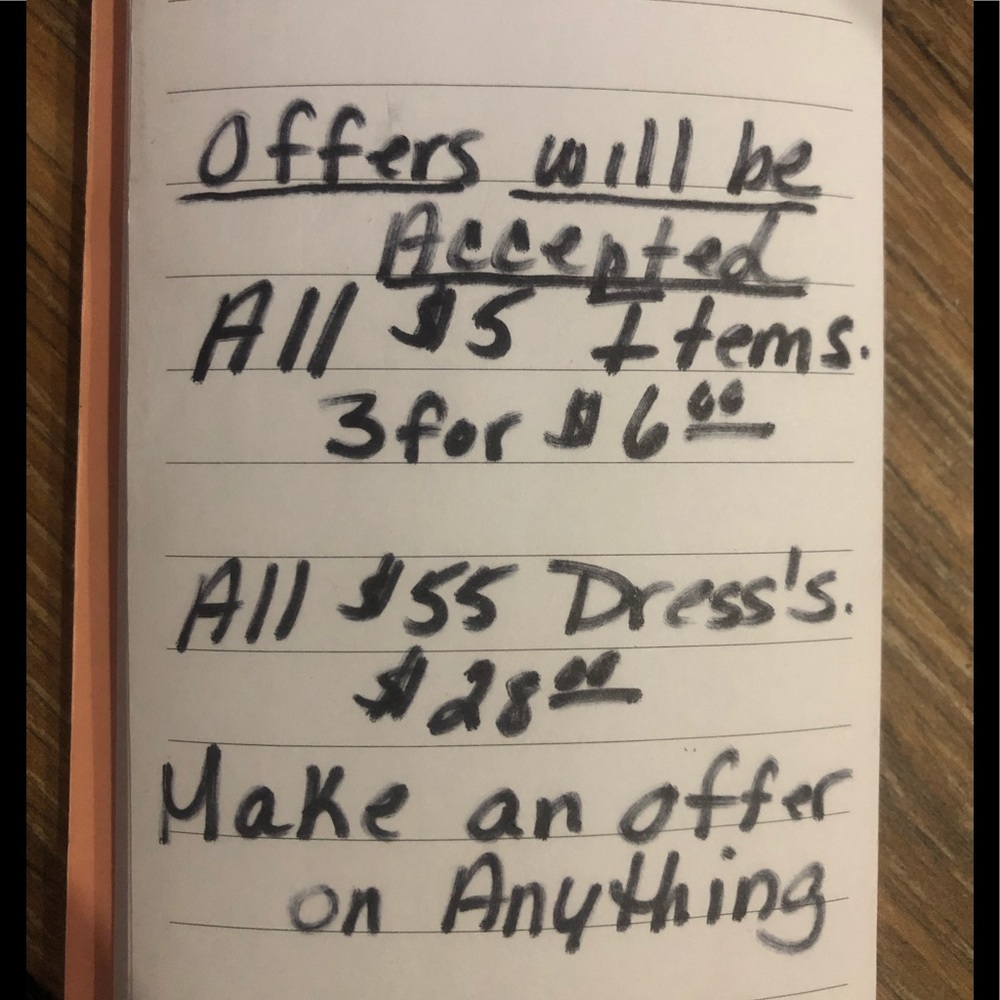 Offers will be
Accepted
All $5 Items.
3 for $6.00
All $55 Dress's.
$28.00
Make an offer
on Anything